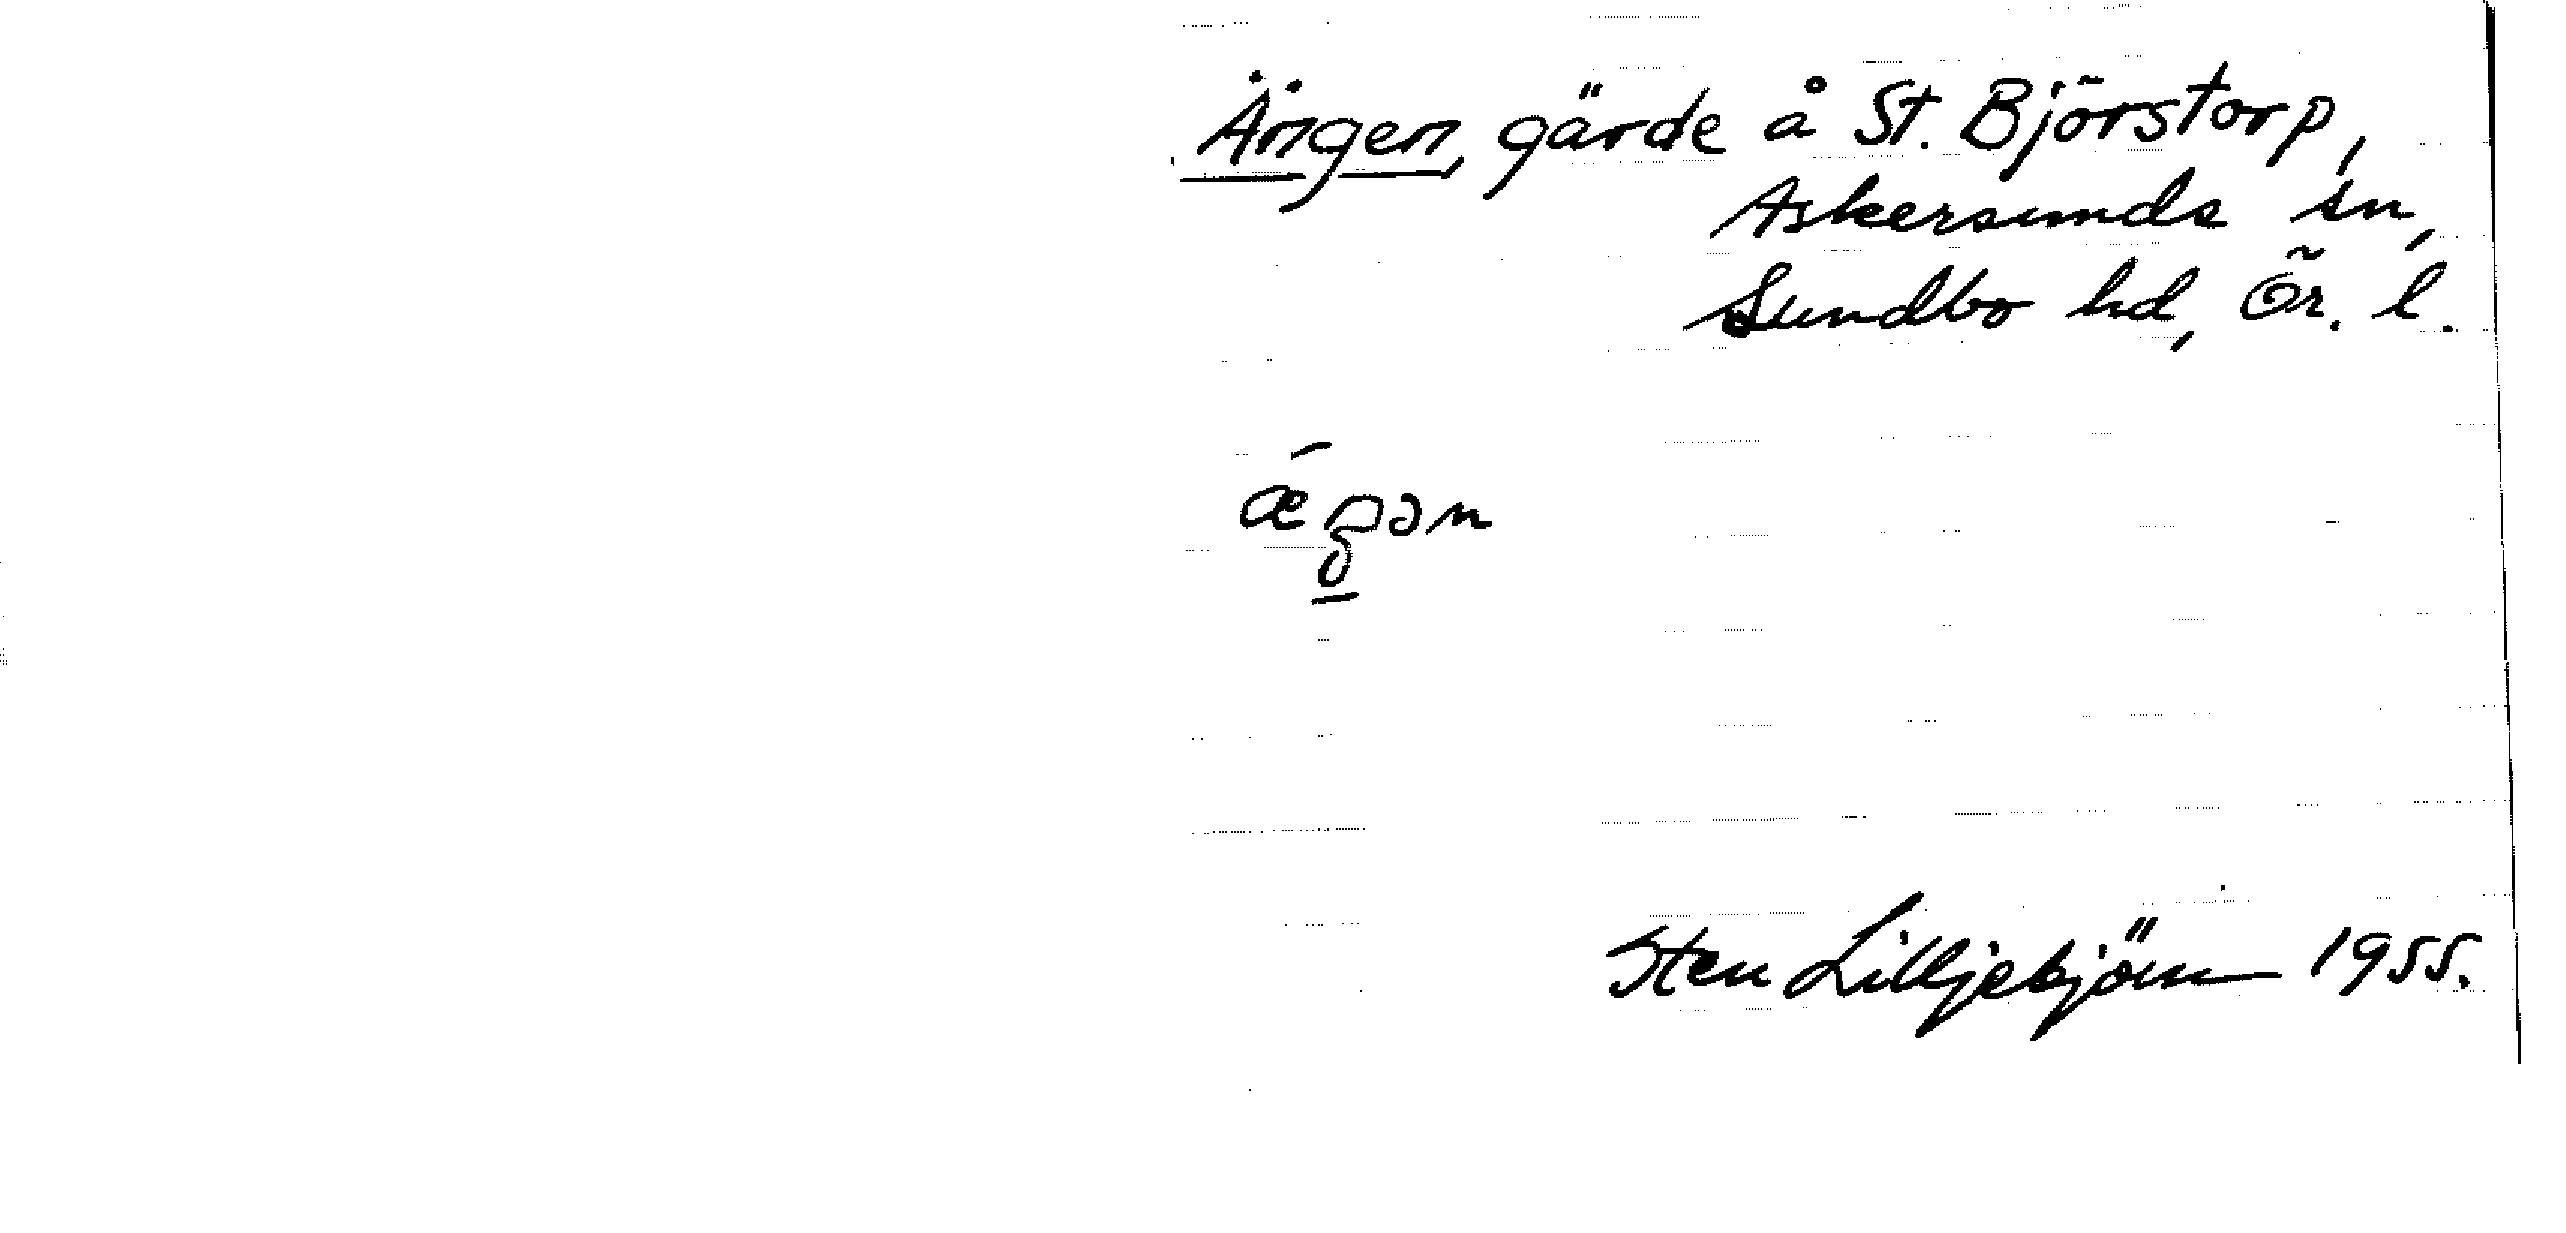 Ängen, gärde å St. Björstorp,
Askersunds sn,
Sundbo hd, Ör. l.
Sten Lilljebjörn 1955.